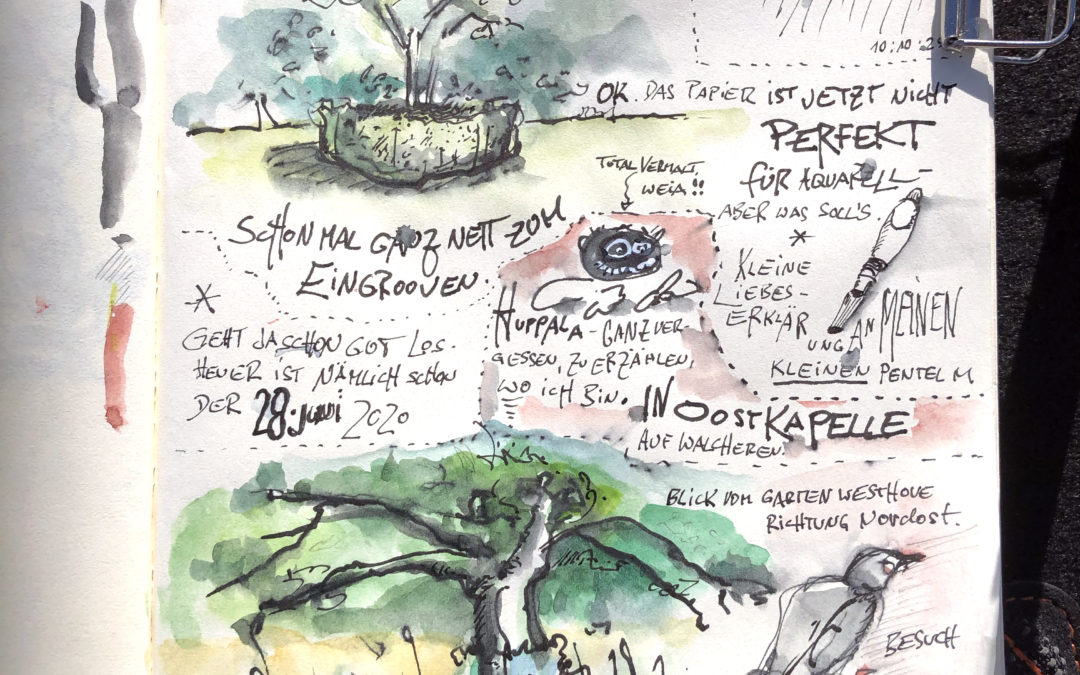 10:10:
OK. DAS PAPIER IST JETZT NICHT
PERFEKT
FÜR AQUARELL-
ABER WAS SOLL'S.
*
TOTAL VERMALT,
WEIA!!
SCHON MAL GANZ NETT ZUM
EINGROOVEN
*
GEHT DA SCHON GUT LOS.
HEUER IST NÄMLICH SCHON
DER 28. JUNI 2020
HUPPALA - GANZ VER
GESSEN, ZU ERZÄHLEN,
WO ICH BIN.
KLEINE
LIEBES-
ERKLÄR
UNG AN MEINEN
KLEINEN PENTEL M
IN OOSTKAPELLE
AUF WALCHEREN.
BLICK VOM GARTEN WESTHOVE
RICHTUNG NORDOST.
BESUCH